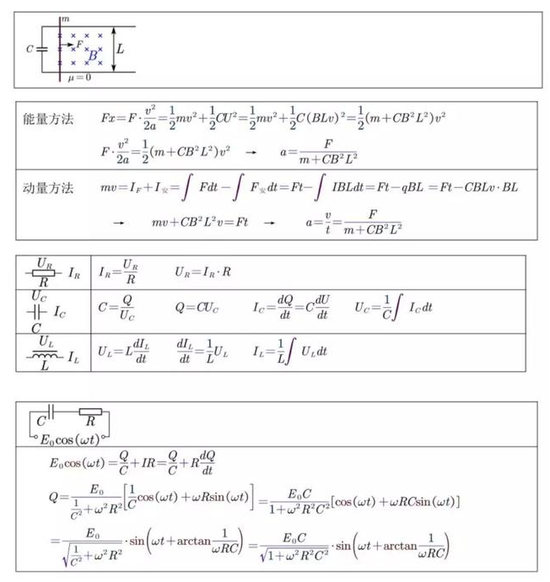 m
C F B L
μ=0
能量方法 Fx=F·v²/2a=1/2mv²+1/2CU²=1/2mv²+1/2C(BLv)²=1/2(m+CB²L²)v²
F·v²/2a=1/2(m+CB²L²)v² → a=F/(m+CB²L²)
动量方法 mv=I_F+I_安=∫Fdt−∫F_安dt=Ft−∫IBLdt=Ft−qBL=Ft−CBLv·BL
→ mv+CB²L²v=Ft → a=v/t=F/(m+CB²L²)
U_R
R I_R I_R=U_R/R U_R=I_R·R
U_C
I_C C=Q/U_C Q=CU_C I_C=dQ/dt=C dU/dt U_C=1/C∫I_C dt
C
U_L
L I_L U_L=L dI_L/dt dI_L/dt=1/L U_L I_L=1/L∫U_L dt
C R
E₀cos(ωt)
E₀cos(ωt)=Q/C+IR=Q/C+R dQ/dt
Q=E₀/(1/C²+ω²R²)[1/C cos(ωt)+ωRsin(ωt)]=E₀C/(1+ω²R²C²)[cos(ωt)+ωRCsin(ωt)]
=E₀/√(1/C²+ω²R²)·sin(ωt+arctan 1/ωRC)=E₀C/√(1+ω²R²C²)·sin(ωt+arctan 1/ωRC)